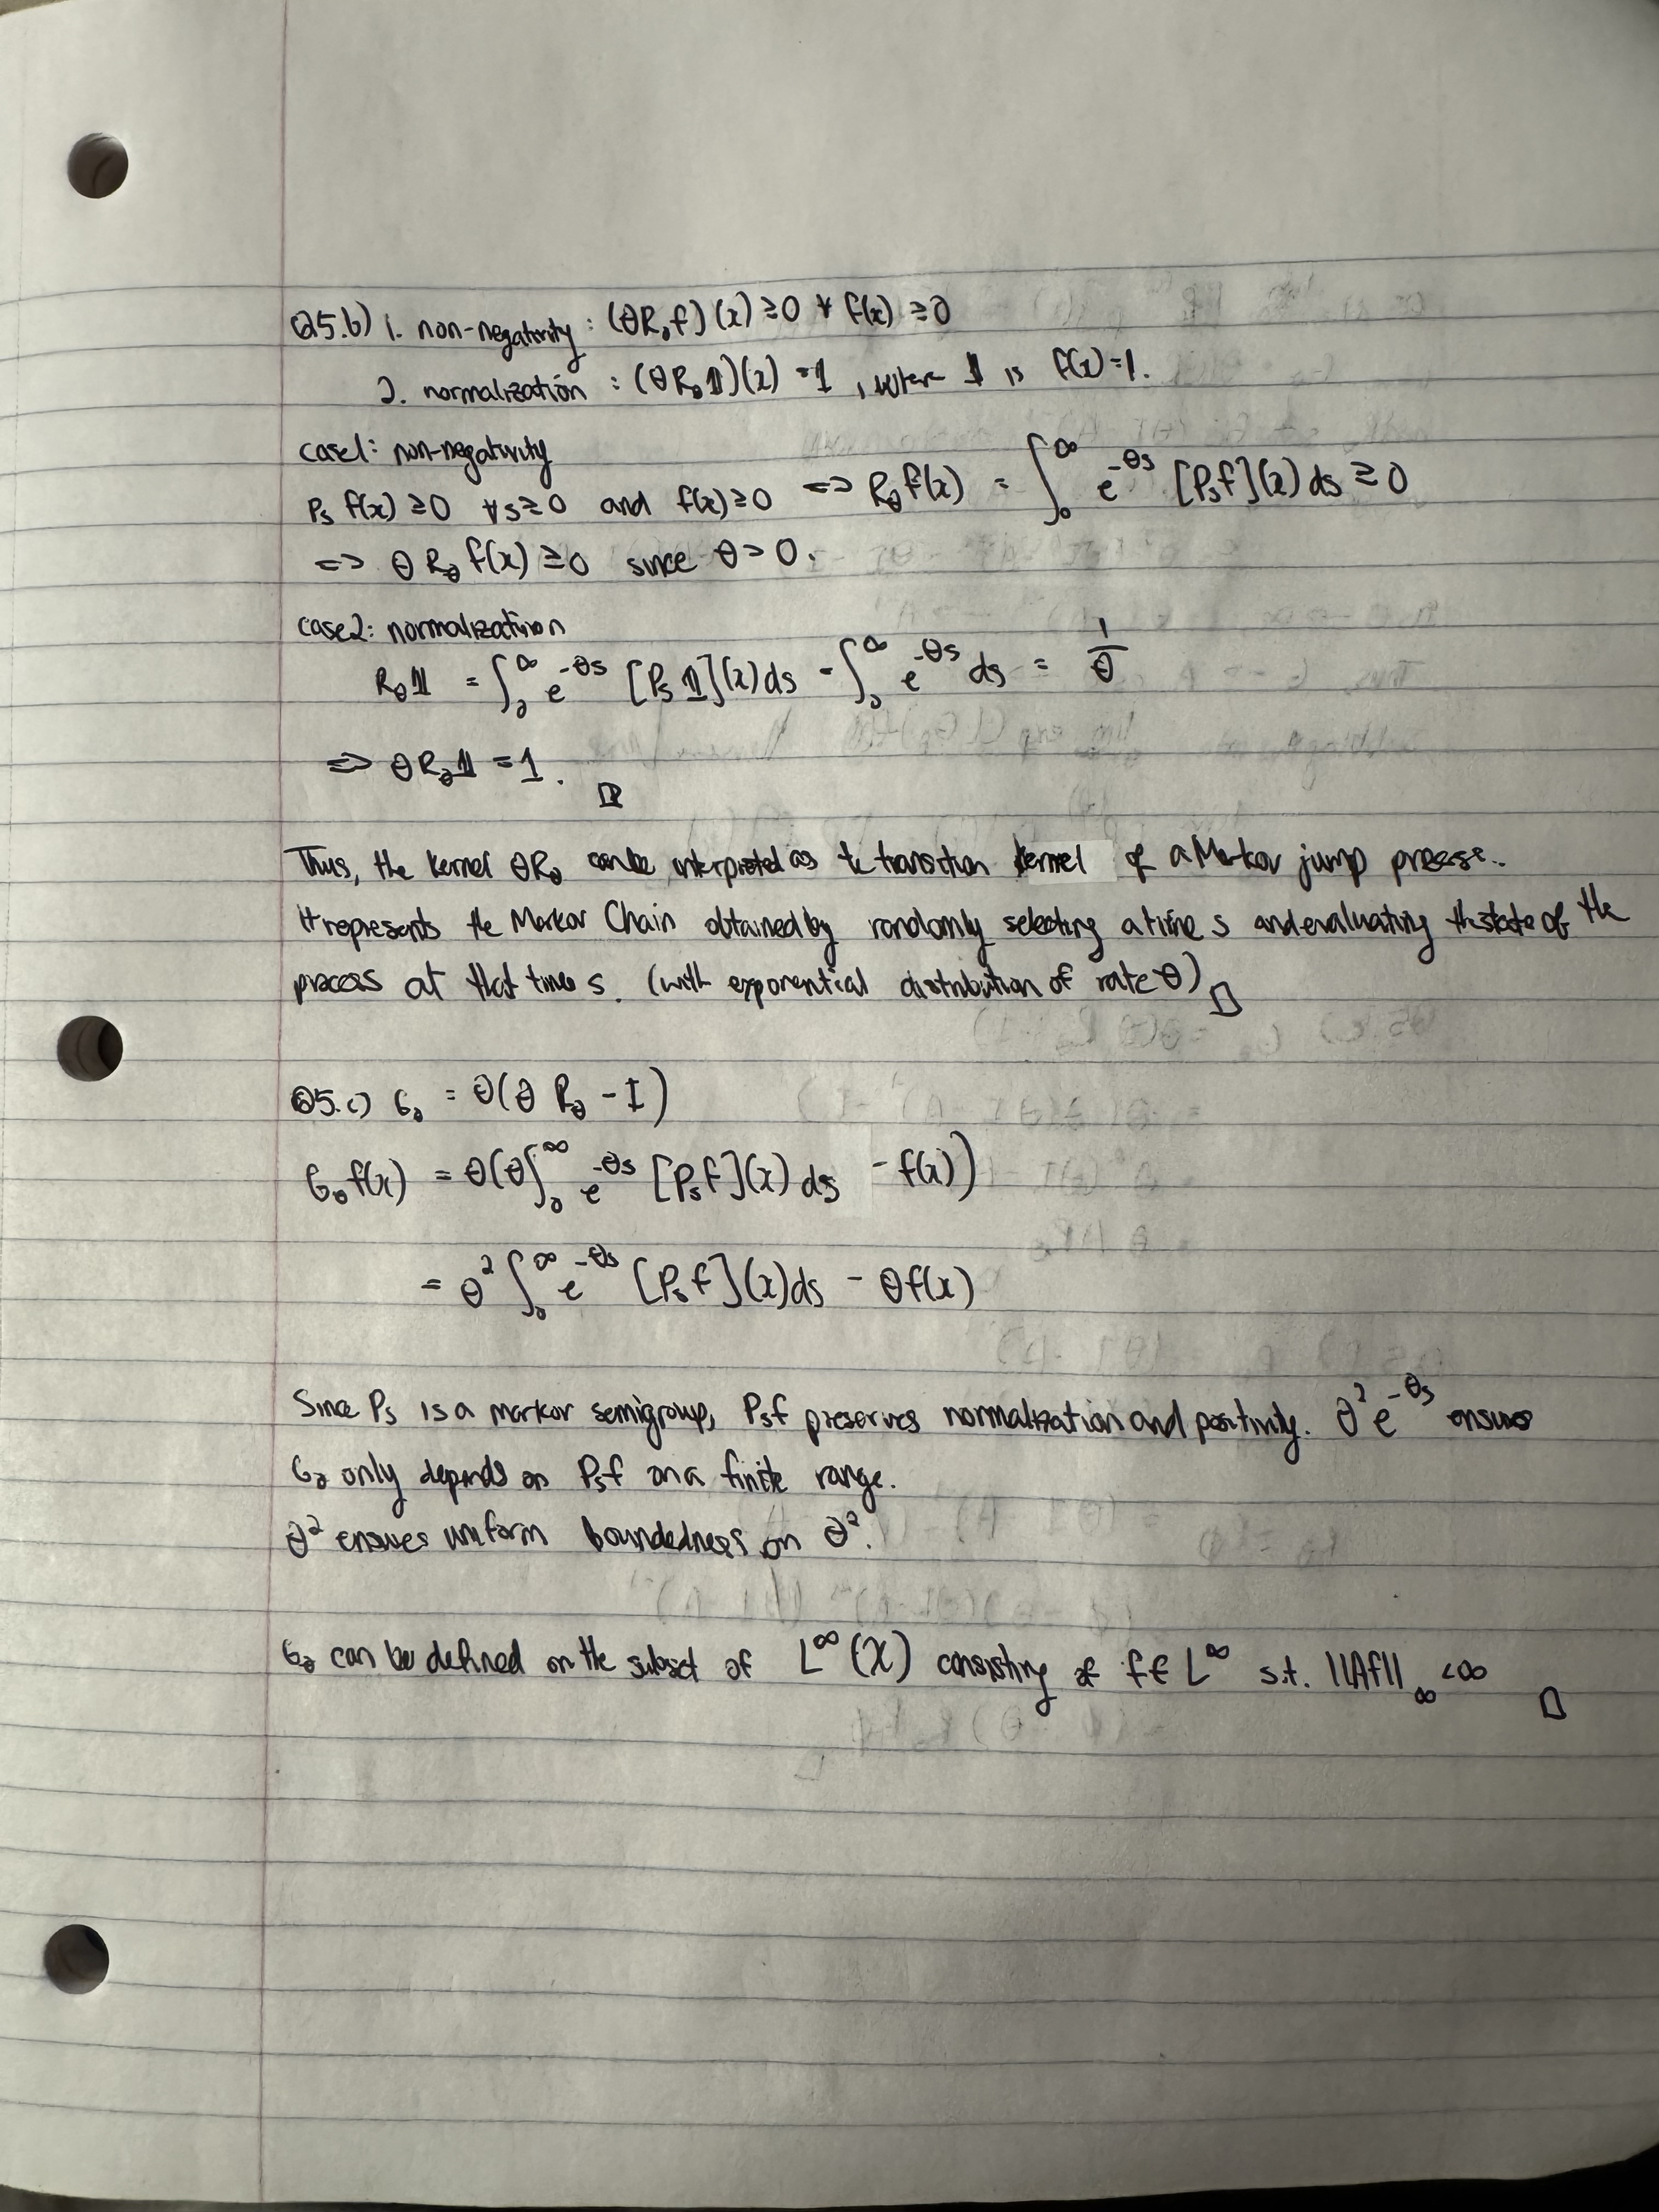 Q5.b) 1. non-negativity : (θR_θ f)(x) ≥ 0 ∀ f(x) ≥ 0
2. normalization : (θR_θ 𝟙)(x) = 1 , where 𝟙 is f(x)=1.
case1: non-negativity
P_s f(x) ≥ 0 ∀s≥0 and f(x)≥0 => R_θ f(x) = ∫_0^∞ e^{-θs} [P_s f](x) ds ≥ 0
=> θ R_θ f(x) ≥ 0 since θ > 0.
case2: normalization
R_θ 𝟙 = ∫_0^∞ e^{-θs} [P_s 𝟙](x) ds = ∫_0^∞ e^{-θs} ds = 1/θ
=> θ R_θ 𝟙 = 1. □
Thus, the kernel θR_θ can be interpreted as the transition kernel of a Markov jump process.
It represents the Markov Chain obtained by randomly selecting a time s and evaluating the state of the
process at that time s. (with exponential distribution of rate θ) □
Q5.c) G_θ = θ(θ R_θ - I)
G_θ f(x) = θ(θ∫_0^∞ e^{-θs} [P_s f](x) ds - f(x))
= θ² ∫_0^∞ e^{-θs} [P_s f](x) ds - θ f(x)
Since P_s is a markov semigroup, P_s f preserves normalization and positivity. θ² e^{-θs} ensures
G_θ only depends on P_s f on a finite range.
θ² ensures uniform boundedness on θ².
G_θ can be defined on the subset of L^∞(X) consisting of f ∈ L^∞ s.t. ||Af||_∞ < ∞ □